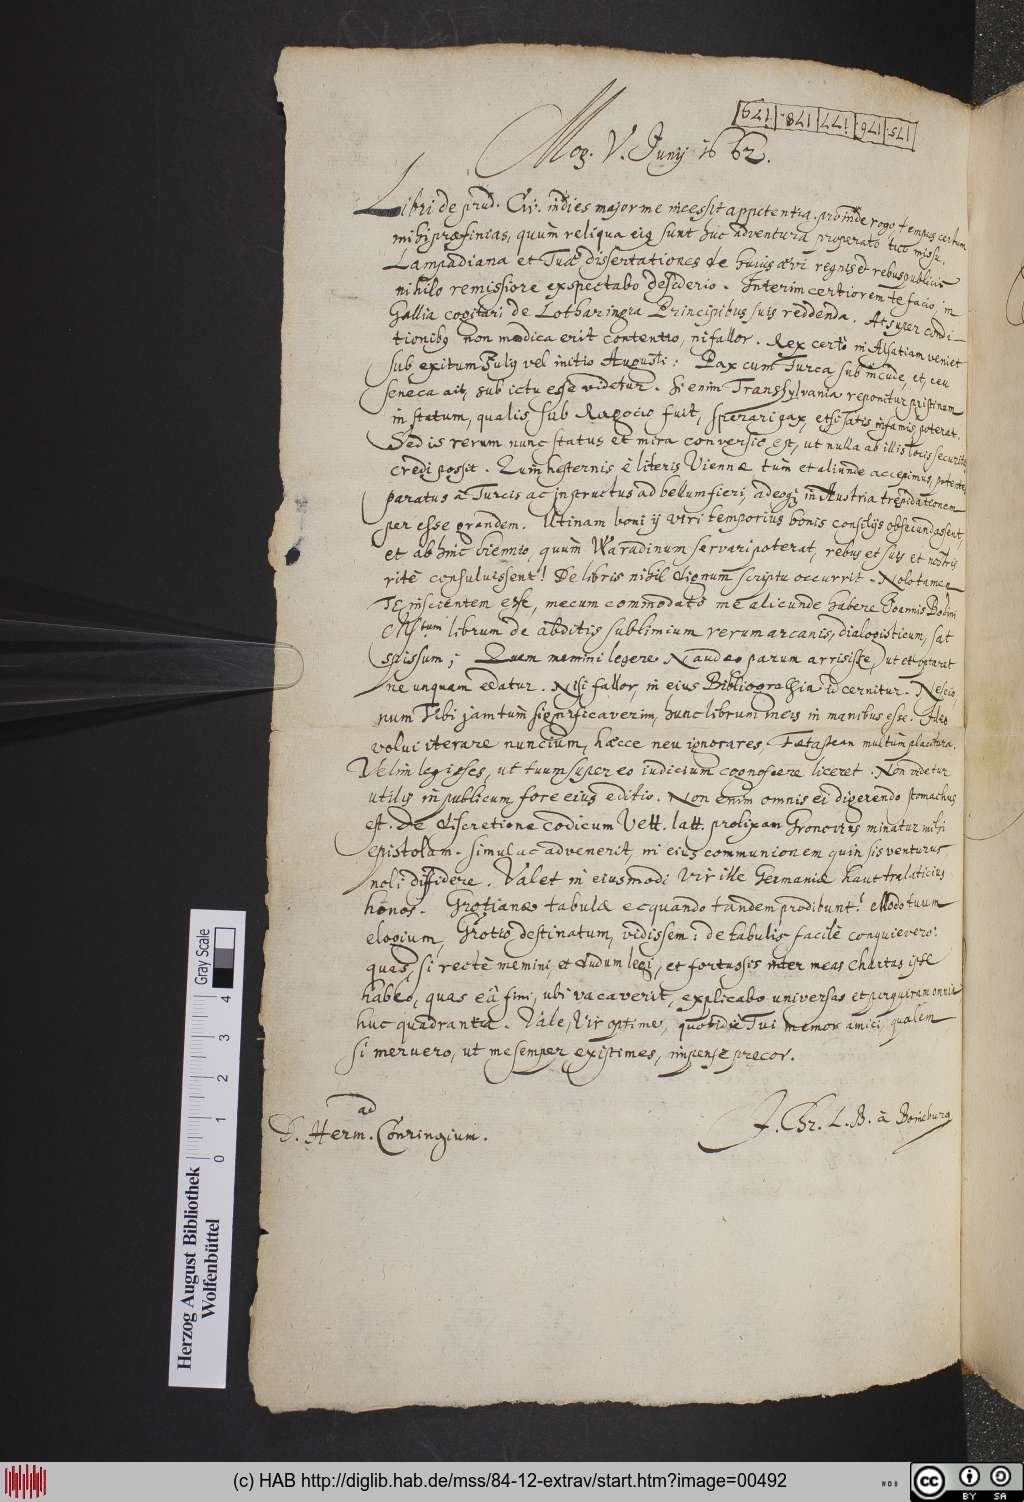 175. 176. 177 178. 179
Mog. V. Junij 1662.
Libri de prud. Civ. indies major me incessit appetentia. proinde rogo tempus certum
mihi præfinias, quum reliqua eiq sunt huc adventura properato tuo missu.
Lampadiana et Tuæ dissertationes de hujus ævi regnis et rebuspublicis
nihilo remissiore exspectabo desiderio. Interim certiorem te facio, in
Gallia cogitari de Lotharingia Principibus suis reddenda. At super condi-
tionibq non modica erit contentio, ni fallor. Rex certò in Alsatiam veniet
sub exitum Julij vel initio Augusti: Pax cum Turca sub incude, et, ceu
seneca ait, sub ictu esse videtur. Si enim Transylvania reponitur pristinum
in statum, qualis sub Ragocio fuit, sperari pax, etsi satis infamis, poterat.
Sed is rerum nunc status et mira conversio est, ut nulla ab illis locis securitas
credi possit. Quin hesternis è literis Viennæ tum et aliunde accepimus, potentes
paratus à Turcis ac instructus ad bellum fieri, adeoq; in Austria trepidationem
per esse grandem. Utinam boni ij viri temporius bonis consilijs obsecundassent,
et ab hinc biennio, quum Waradinum servari poterat, rebus et suis et nostris
ritè consuluissent! De libris nihil dignum scriptu occurrit. Nolo tamen
Te inscientem esse, mecum commodatò me alicunde habere Joannis Bodini
librum de abditis sublimium rerum arcanis, dialogisticum, sat
spissum; Quem memini legere Naudæo parum arrisisse, ut et optarat
ne unquam edatur. Nisi fallor, in eius Bibliographia id cernitur. Nescio,
num Tibi jam tum significaverim, hunc librum meis in manibus esse. Ideo
volui iterare nuncium, hæcce neu ignorares, Tætassean multum placitura.
Velim legisses, ut tuum super eo iudicium cognoscere liceret. Non videtur
utilis in publicum fore eius editio. Non enim omnis ei digerendo stomachus
est. De discretione codicum Vett. latt. prolixam Gronovius minatur mihi
epistolam. Simul ac advenerit, in eius communionem quin sis venturus
noli diffidere. Valet in eiusmodi vir ille Germaniæ haut tralaticius
honos. Grotianæ tabulæ ecquando tandem prodibunt? Modo tuum
elogium, Grotio destinatum, vidissem: de tabulis facilè conquievero:
quas, si rectè memini, et dudum legi, et fortassis inter meas chartas iste
habeo, quas eâ fini, ubi vacaverit, explicabo universas et perquiram omnia
huc quadrantia. Vale, Vir optime, quotidie Tui memor amici, qualem
si meruero, ut me semper existimes, impensè precor.
J. Chr. L. B. à Boineburg
ad
D. Herm. Conringium.
Herzog August Bibliothek
Wolfenbüttel
Gray Scale
0 1 2 3 4
(c) HAB http://diglib.hab.de/mss/84-12-extrav/start.htm?image=00492
WDB
cc BY SA